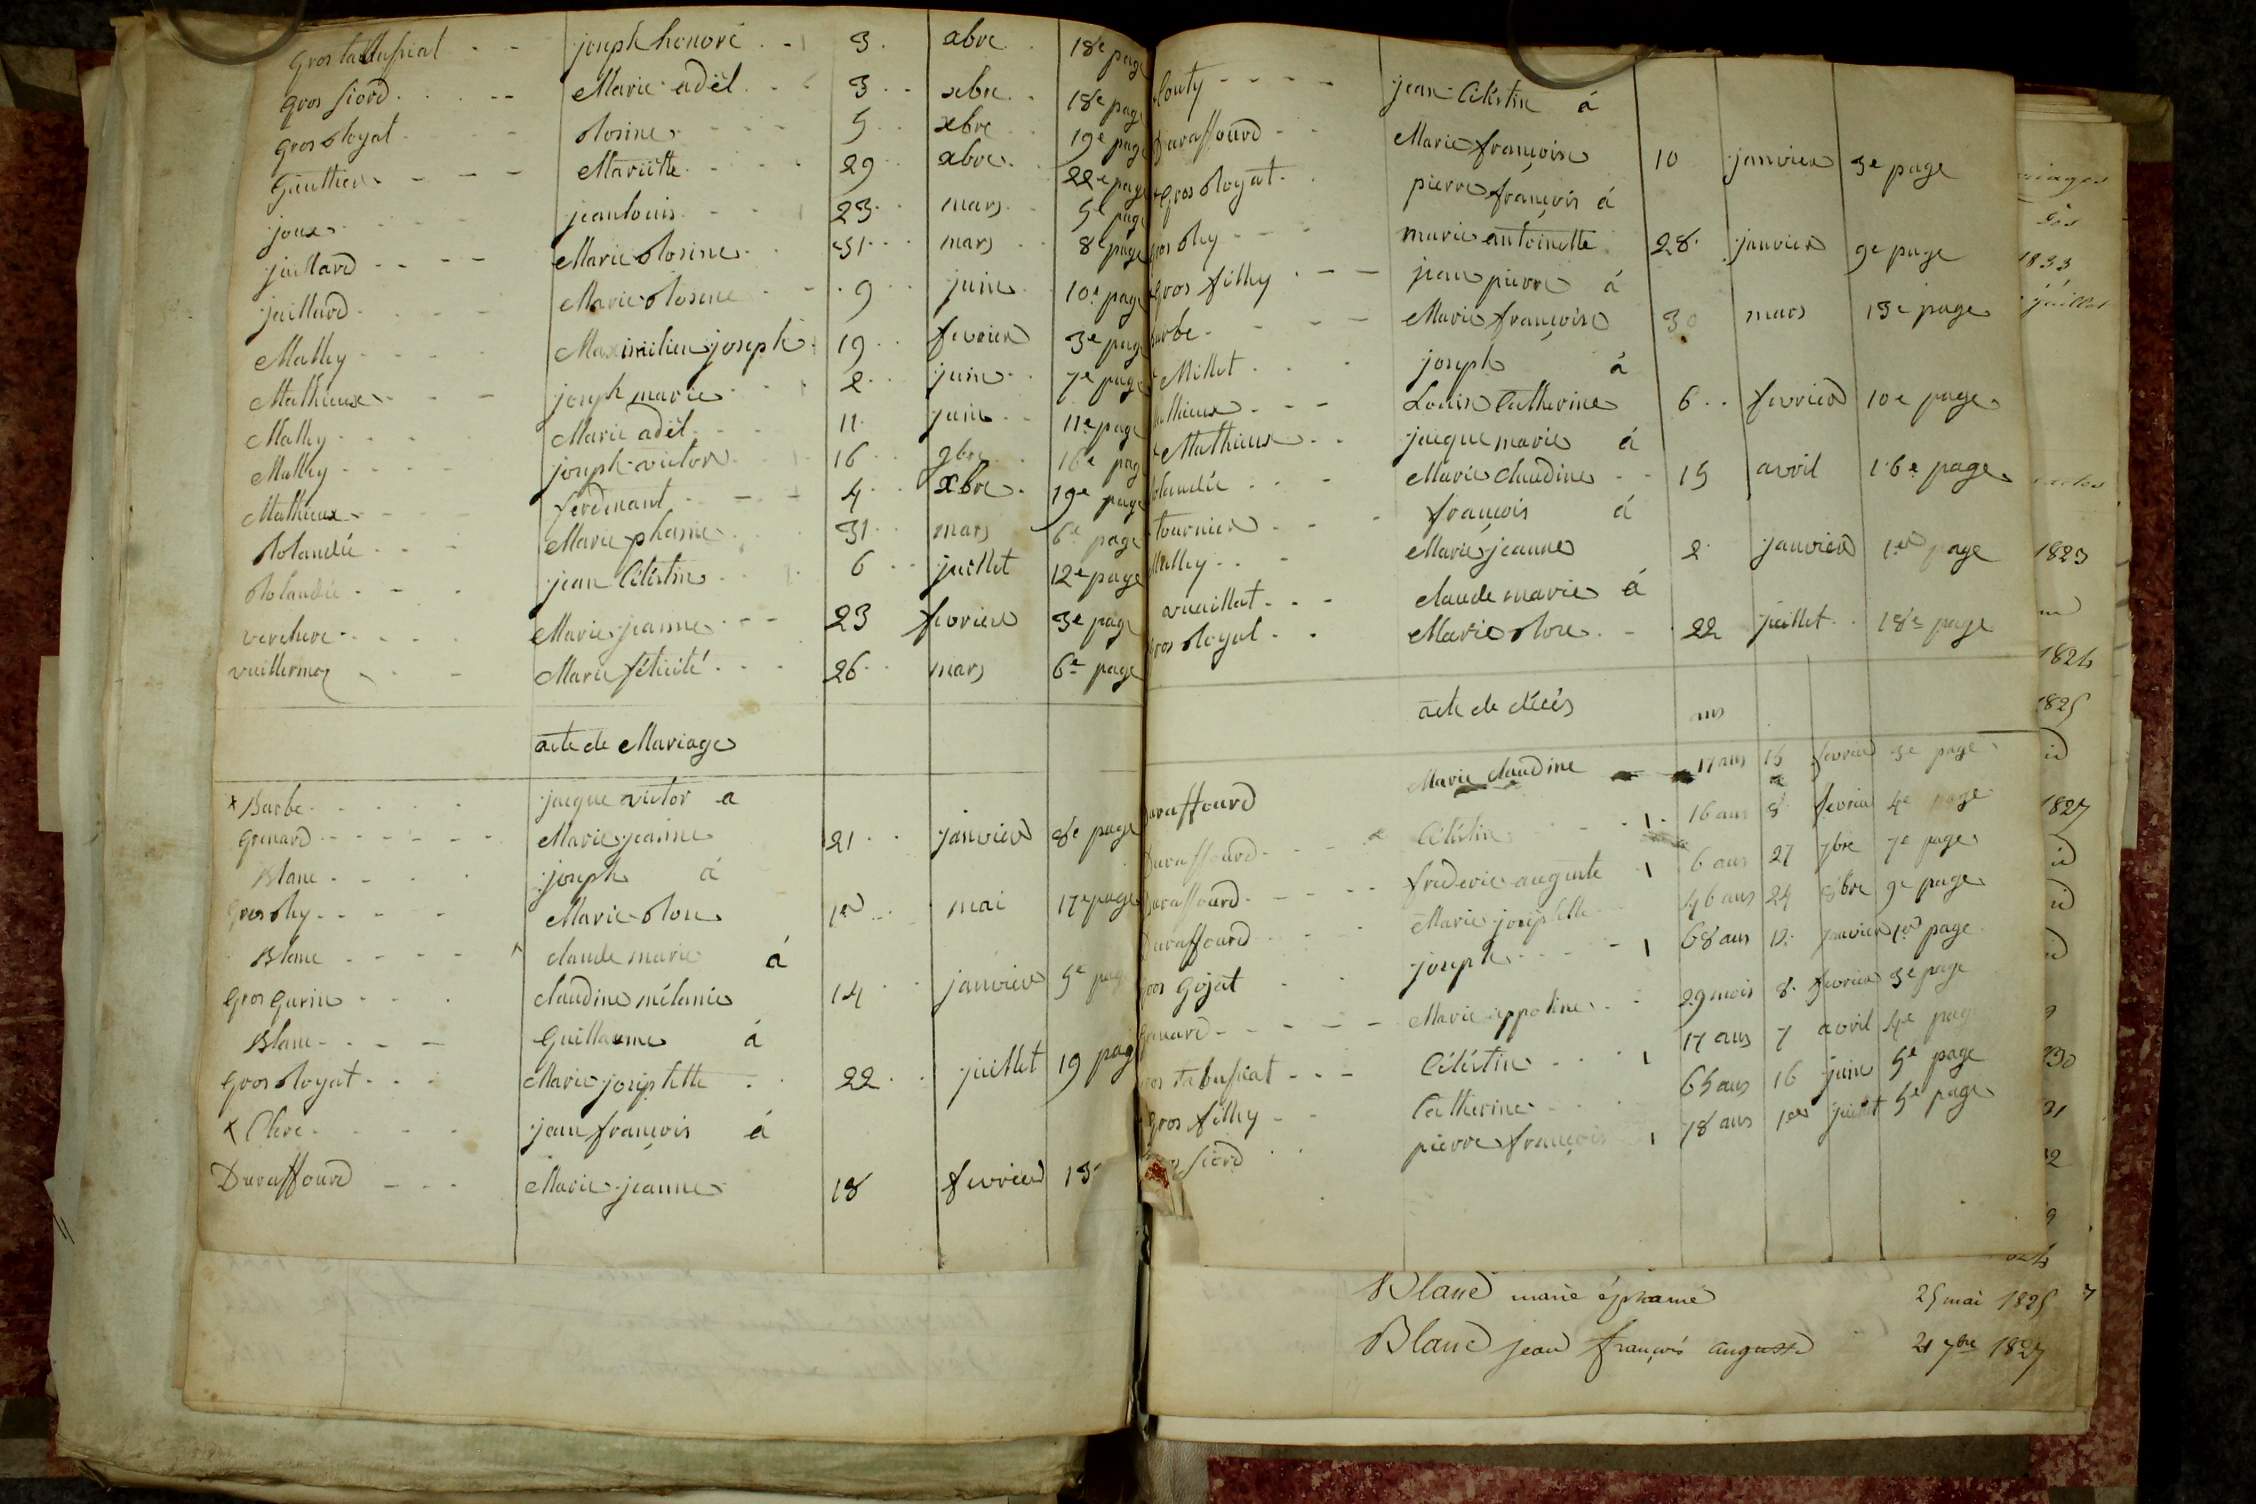 joseph honoré 3 xbre 18e page
gros fiord Marie adèl 3 xbre 18e page
gros Royat Rosine 5 xbre 19e page
Gauthier Mariette 29 xbre 22e page
joux jean louis 23 mars 5e page
juillard Marie Rosine 31 mars 8e page
juillard Marie Rosine 9 juin 10e page
Mathy Maximilien joseph 19 fevrier 3e page
Mathieux joseph marie 2 juin 7e page
Mathy Marie adèl 11 juin 11e page
Mathy joseph victor 16 9bre 16e page
Mathieux ferdinant 4 xbre 19e page
Rolandéz Marie phanie 31 mars 6e page
Rolandéz jean Célestin 6 juillet 12e page
verchere Marie jeanne 23 fevrier 3e page
vuillermoz Marie félicité 26 mars 6e page
acte de Mariage
x Barbe jacque victor a
Grenard Marie jeanne 21 janvier 8e page
Blanc joseph á
Gros Rhy Marie Rose 1er mai 17e page
Blanc claude marie á
Gros Gurin claudine mélanie 14 janvier 5e page
Blanc Guillaume á
Gros Royat Marie josephtte 22 juillet 19 page
x Clerc jean françois á
Duraffourd Marie jeanne 18 fevrier 13
jean Célestin á
Duraffourd Marie françoise 10 janvier 3e page
Gros Royat pierre françois á
gros Rhy marie antoinette 28 janvier 9e page
Gros filly jean pierre á
Barbe Marie françoise 30 mars 13e page
Millet joseph á
Mathieux Louise Catherine 6 fevrier 10e page
Mathieux jacque marie á
Rolandéz Marie claudine 15 avril 16e page
tournier françois á
Mathy Marie jeanne 2 janvier 1er page
vuaillat claude marie á
Gros Royat Marie Rose 22 juillet 18e page
acte de décés ans
Duraffourd Marie claudine 17 ans 15 fevrier 3e page
Duraffourd Célestin 16 ans 8 fevrier 4e page
Duraffourd frederic auguste 6 ans 27 7bre 7e page
Duraffourd Marie josephtte 46 ans 24 8bre 9e page
Gros Gojat joseph 68 ans 12 janvier 1er page
Grenard Marie appoline 29 mois 8 fevrier 3e page
Célestin 17 ans 7 avril 4e page
Gros filly Catherine 65 ans 16 juin 5e page
fiord pierre françois 78 ans 1er juillet 5e page
Blanc marie éphanie 25 mai 1825
Blanc jean françois auguste 21 7bre 1827
1833
juillet
1823
1824
1825
id
1827
id
id
id